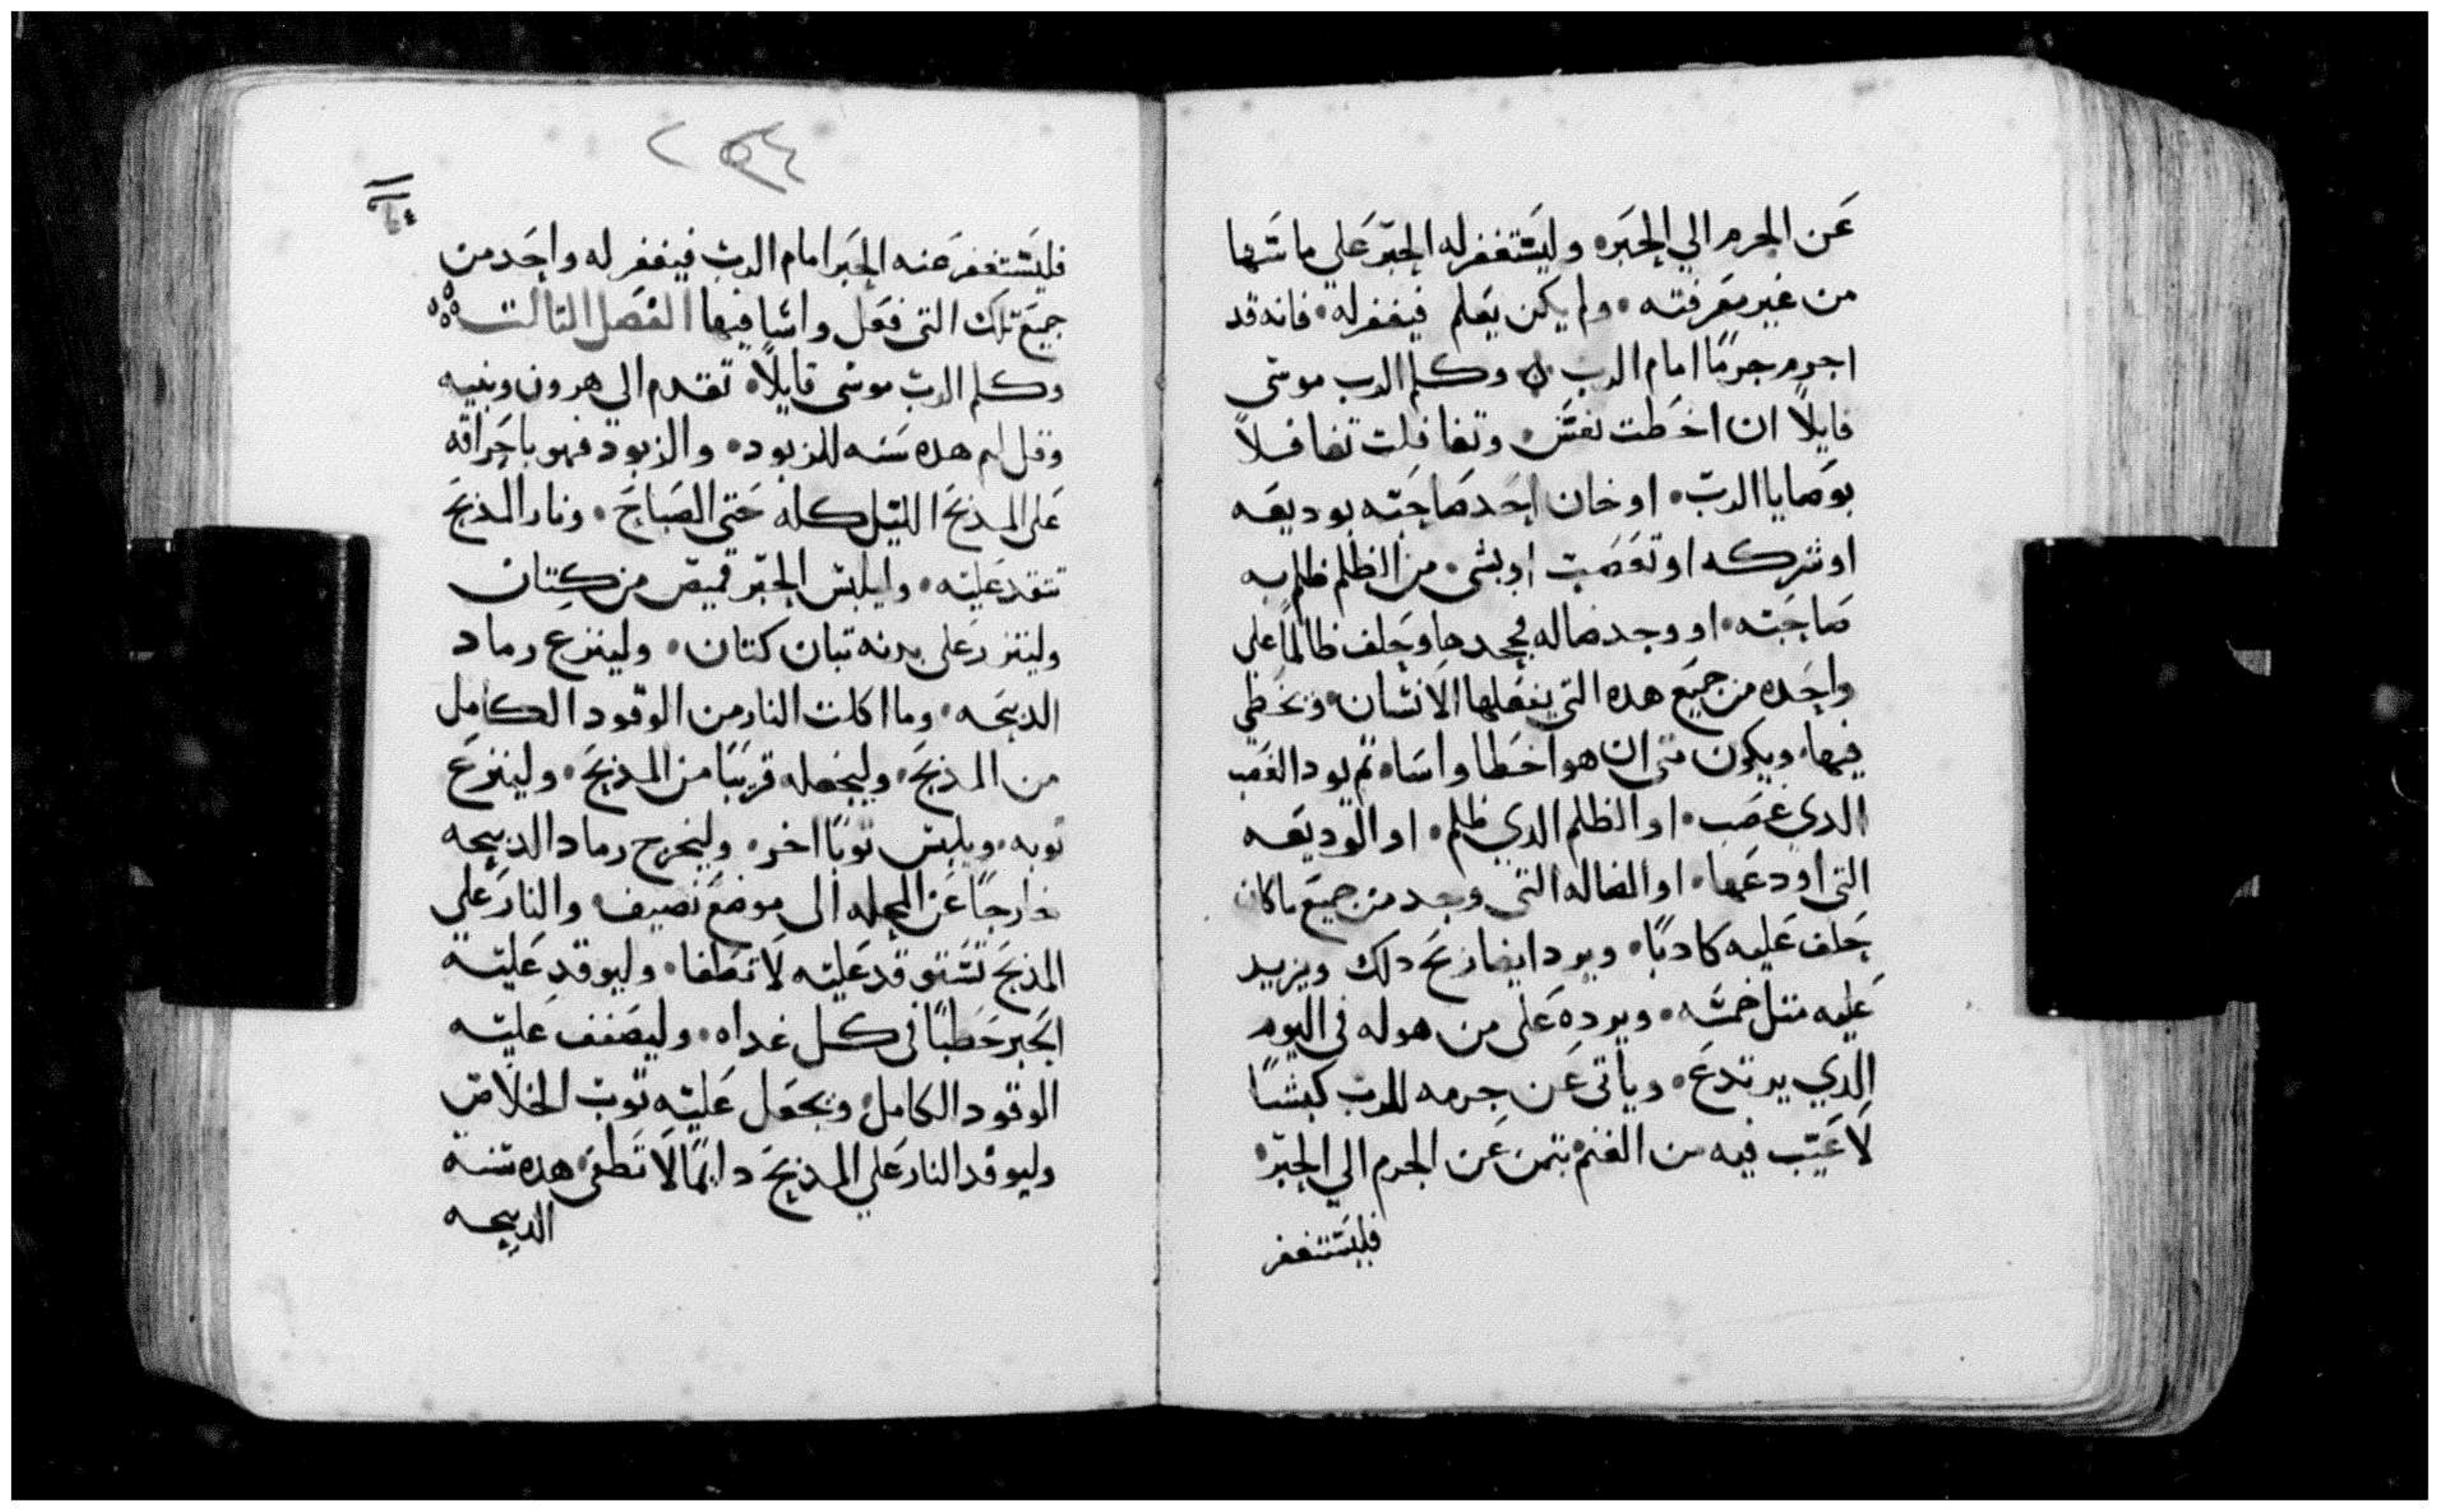 عن الجرم الي الحبر۰ وليستغفر له الحبر علي ما سها
من غير معرفته۰ ولم يكن يعلم فيغفر له۰ فانه قد
اجرم جرمًا امام الرب ۰ وكلم الرب موسى
قايلاً ان اخطت نفس۰ وتغافلت تغافلاً
بوصايا الرب۰ او خان احد صاحبه بوديعه
او شركه او تغصب او بشي من الظلم ظلم به
صاحبه۰ او وجد ضاله فجحدها وحلف ظالمًا علي
واحده من جميع هده التي يفعلها الانسان۰ ويخطي
فيها۰ ويكون متى ان هو اخطا واساه تم يود الغصب
الدي غصب۰ او الظلم الدي ظلم۰ او الوديعه
التي اودعها۰ او الضاله التي وجد من جميع ما كان
حلف عليه كادبًا۰ ويرد ايضا دلك ويزيد
عليه متل خمسه۰ ويرده على من هو له في اليوم
الدي يرتدع۰ وياتي عن جرمه للرب كبشًا
لا عيب فيه من الغنم بتمن عن الجرم الي الحبر۰
فليستغفر
٢٥٤
فليستغفر عنه الحبر امام الرب فيغفر له واحد من
جميع تلك التي فعل واسا فيها الفصل التالت
وكلم الرب موسى قايلاً۰ تقدم الى هرون وبنيه
وقل لهم هده سنه للزبود۰ والزبود فهو باحراقه
على المذبح الليل كله حتى الصباح۰ ونار المذبح
تتقد عليه۰ وليلبس الحبر قميص من كتان
وليتزر على بدنه تبان كتان۰ ولينزع رماد
الدبيحه۰ وما اكلت النار من الوقود الكامل
من المذبح۰ وليجعله قريبًا من المذبح۰ ولينزع
توبه۰ ويلبس توبًا اخر۰ وليخرج رماد الدبيحه
خارجًا عن المحله الى موضع نضيف۰ والنار علي
المذبح تستوقد عليه لا تطفا۰ وليوقد عليه
الحبر حطبًا في كل غداه۰ وليصفف عليه
الوقود الكامل۰ ويجعل عليه توب الخلاص
وليوقد النار علي المذبح دايمًا لا تطفى هده سنة
الدبيحه